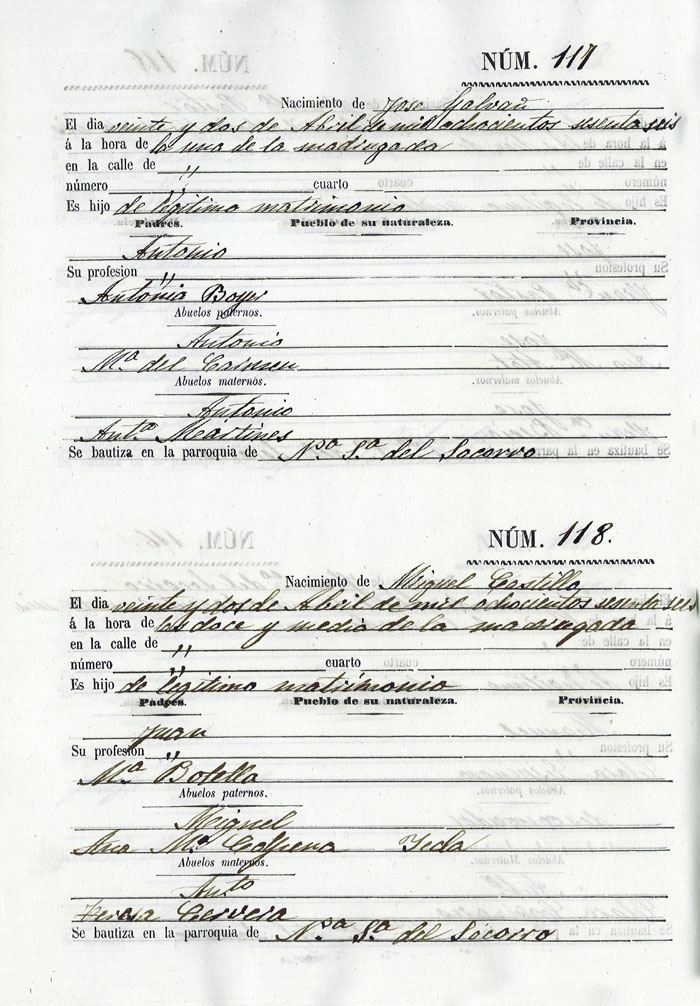 NÚM. 117
Nacimiento de Jose Galvañ
El dia veinte y dos de Abril de mil ochocientos sesenta seis
á la hora de la una de la madrugada
en la calle de "
número " cuarto
Es hijo de legitimo matrimonio
Padres. Pueblo de su naturaleza. Provincia.
Antonio
Su profesion "
Antonia Boyer
Abuelos paternos.
Antonio
Mª del Carmen
Abuelos maternos.
Antonio
Antª Martines
Se bautiza en la parroquia de Nª Sª del Socorro
NÚM. 118.
Nacimiento de Miguel Castillo
El dia veinte y dos de Abril de mil ochocientos sesenta seis
á la hora de las doce y media de la madrugada
en la calle de "
número " cuarto
Es hijo de legitimo matrimonio
Padres. Pueblo de su naturaleza. Provincia.
Juan
Su profesión "
Mª Botella
Abuelos paternos.
Miguel
Ana Mª Yecla
Abuelos maternos.
Antº
Teresa Cervera
Se bautiza en la parroquia de Nª Sª del Socorro